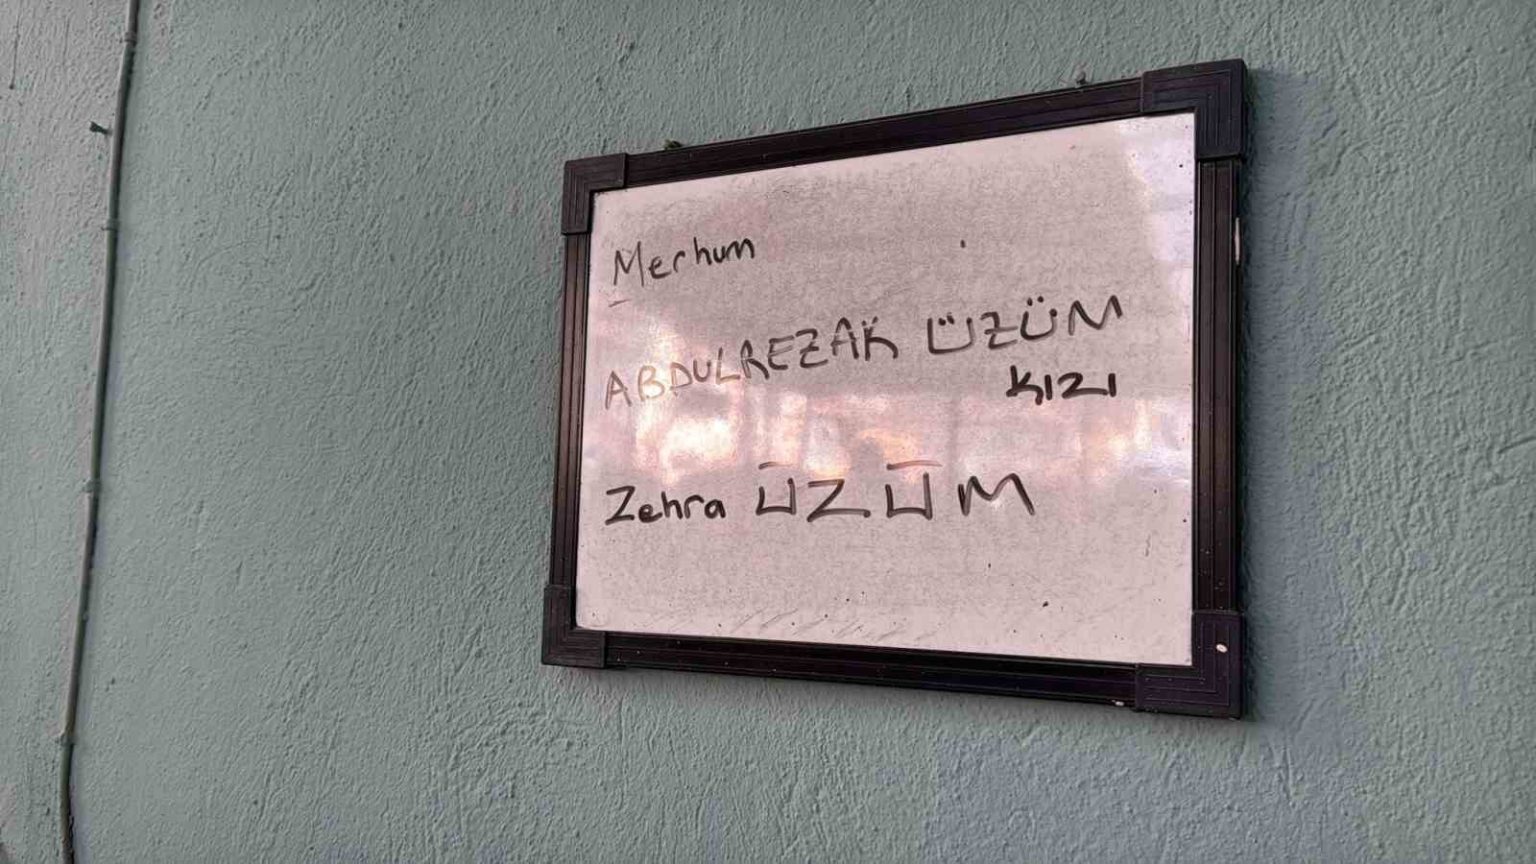 Merhum
ABDULREZAK ÜZÜM
KIZI
Zehra ÜZÜM